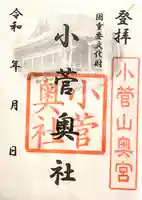 登拝
小菅山奥宮
国重要文化財
小菅奥社
小菅
奥社
令和　年　月　日